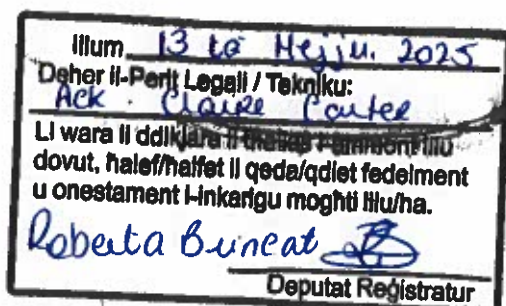 Illum 13 ta Mejju. 2025
Deher il-Perit Legali / Tekniku:
Ack. Claire
Li wara li ddikjara li
dovut, ħalef/ħalfet li qeda/qdiet fedelment
u onestament l-inkarigu mogħti lilu/ha.
Roberta Brincat
Deputat Reġistratur